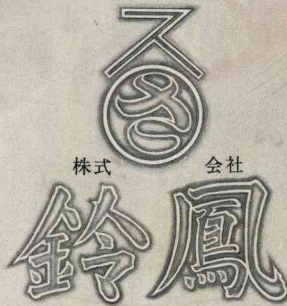 ス
さ
株式 会社
鈴鳳